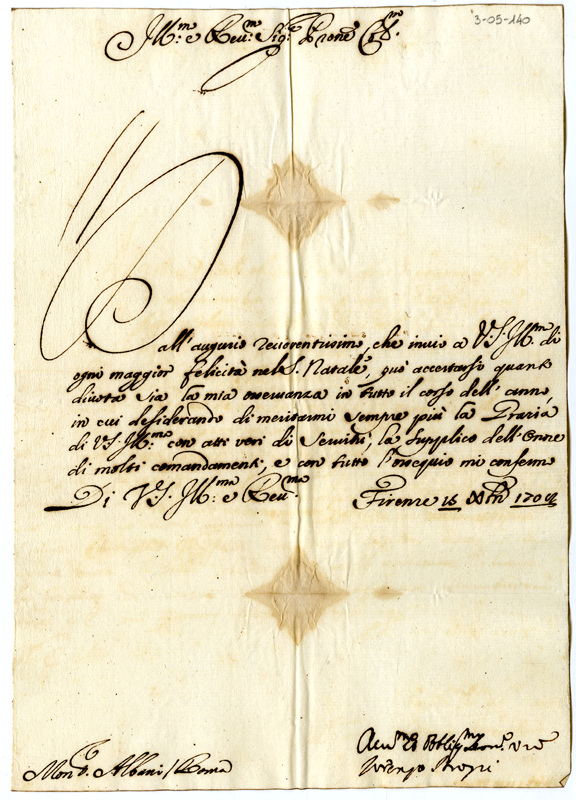 3-05-140
Ill.mo e Reu.mo Sig.re Prone Col.mo
Dall'augurio reuerentissimo, che inuio a V.S. Ill.ma di
ogni maggior felicità nel S. Natale, può accertarsi quanto
diuota sia la mia osseruanza in tutto il corso dell'anno,
in cui desiderando di meritarmi sempre più la Grazia
di V.S. Ill.ma con atti veri di Seruitù, la supplico dell'onore
di molti comandamenti, e con tutto l'ossequio mi confermo
Di V.S. Ill.ma e Reu.ma Firenze 16 Xbre
Mons.r Albani / Roma